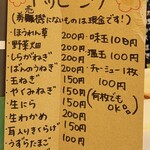 トッピング
(券売機にないものは現金です!)
・ほうれん草 200円
・野菜畑 200円
・しらがねぎ 200円
・ばんのうねぎ 200円
・玉ねぎ 150円
・やくみねぎ 150円
・生にら 150円
・生わかめ 200円
・耳入りきくらげ 150円
・うずらたまご 100円
・味玉 100円
・温玉 100円
・チャーシュー1枚 100円
(何枚でもOK。)